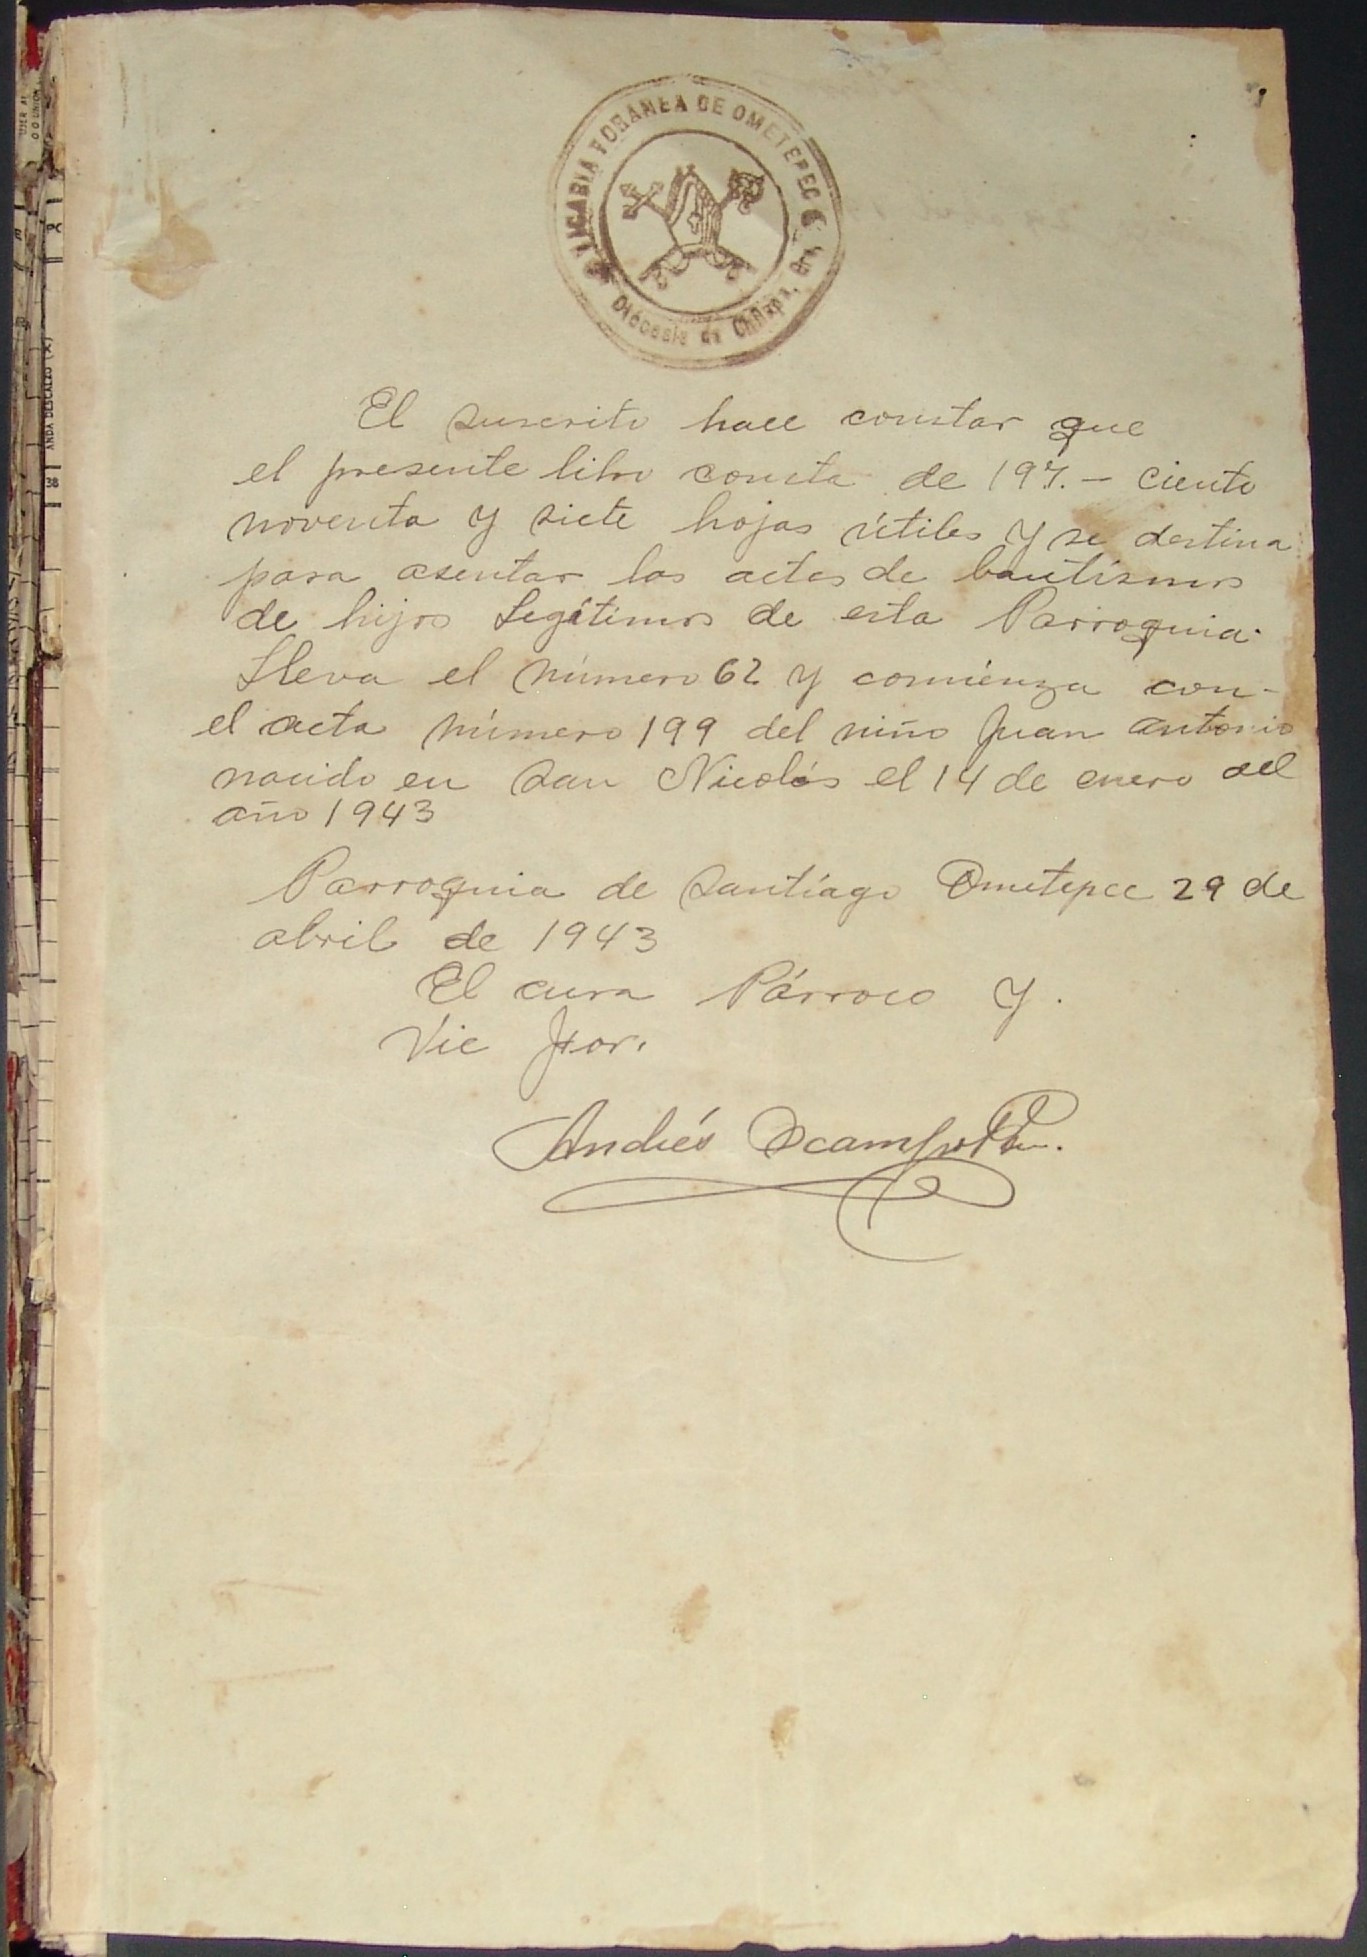 VICARIA FORANEA DE OMETEPEC
Diócesis de Chilapa, Gro.
El suscrito hace constar que
el presente libro consta de 197.- ciento
noventa y siete hojas útiles y se destina
para asentar las actas de bautismos
de hijos Legítimos de esta Parroquia.
Lleva el número 62 y comienza con-
el acta número 199 del niño Juan antonio
nacido en San Nicolás el 14 de enero del
año 1943
Parroquia de Santiago Ometepec 29 de
abril de 1943
El cura Párroco y.
Vic For.
Andrés Ocampo
ANDA DESCALZO (X)
38